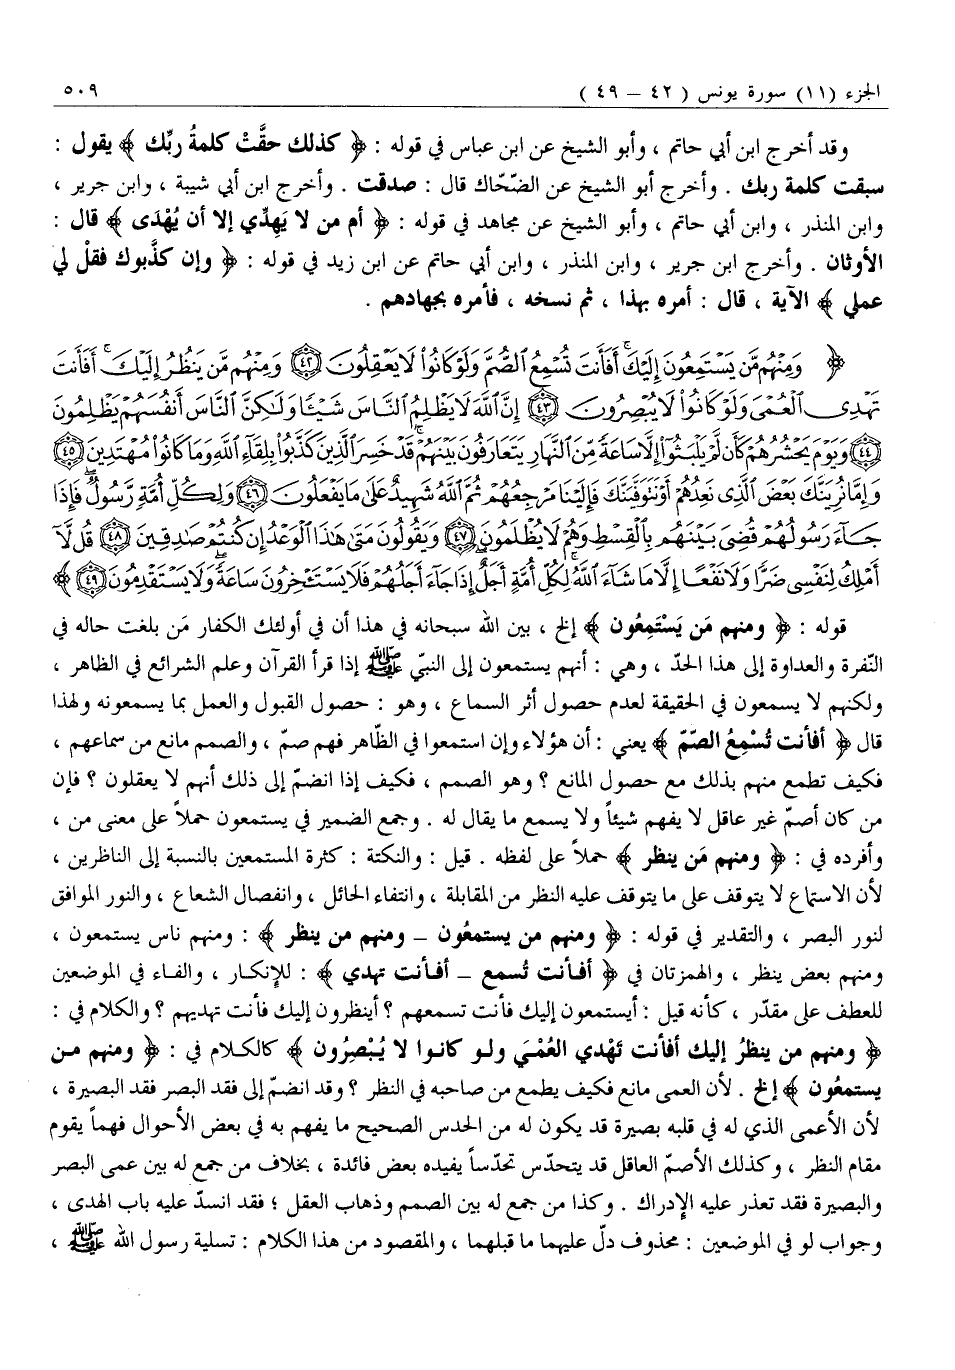 الجزء (١١) سورة يونس ( ٤٢ – ٤٩ ) ٥٠٩
وقد أخرج ابن أبي حاتم ، وأبو الشيخ عن ابن عباس في قوله : ﴿ كذلك حقَّتْ كلمةُ ربِّك ﴾ يقول :
سبقت كلمة ربك . وأخرج أبو الشيخ عن الضّحّاك قال : صدقت . وأخرج ابن أبي شيبة ، وابن جرير ،
وابن المنذر ، وابن أبي حاتم ، وأبو الشيخ عن مجاهد في قوله : ﴿ أم من لا يَهِدِّي إلا أن يُهْدَى ﴾ قال :
الأوثان . وأخرج ابن جرير ، وابن المنذر ، وابن أبي حاتم عن ابن زيد في قوله : ﴿ وإن كذَّبوك فقلْ لي
عملي ﴾ الآية ، قال : أمره بهذا ، ثم نسخه ، فأمره بجهادهم .
﴿ وَمِنْهُم مَّن يَسْتَمِعُونَ إِلَيْكَ ۚ أَفَأَنتَ تُسْمِعُ ٱلصُّمَّ وَلَوْ كَانُوا۟ لَا يَعْقِلُونَ ٤٢ وَمِنْهُم مَّن يَنظُرُ إِلَيْكَ ۚ أَفَأَنتَ
تَهْدِى ٱلْعُمْىَ وَلَوْ كَانُوا۟ لَا يُبْصِرُونَ ٤٣ إِنَّ ٱللَّهَ لَا يَظْلِمُ ٱلنَّاسَ شَيْـًٔا وَلَـٰكِنَّ ٱلنَّاسَ أَنفُسَهُمْ يَظْلِمُونَ
٤٤ وَيَوْمَ يَحْشُرُهُمْ كَأَن لَّمْ يَلْبَثُوٓا۟ إِلَّا سَاعَةً مِّنَ ٱلنَّهَارِ يَتَعَارَفُونَ بَيْنَهُمْ ۚ قَدْ خَسِرَ ٱلَّذِينَ كَذَّبُوا۟ بِلِقَآءِ ٱللَّهِ وَمَا كَانُوا۟ مُهْتَدِينَ ٤٥
وَإِمَّا نُرِيَنَّكَ بَعْضَ ٱلَّذِى نَعِدُهُمْ أَوْ نَتَوَفَّيَنَّكَ فَإِلَيْنَا مَرْجِعُهُمْ ثُمَّ ٱللَّهُ شَهِيدٌ عَلَىٰ مَا يَفْعَلُونَ ٤٦ وَلِكُلِّ أُمَّةٍ رَّسُولٌ ۖ فَإِذَا
جَآءَ رَسُولُهُمْ قُضِىَ بَيْنَهُم بِٱلْقِسْطِ وَهُمْ لَا يُظْلَمُونَ ٤٧ وَيَقُولُونَ مَتَىٰ هَـٰذَا ٱلْوَعْدُ إِن كُنتُمْ صَـٰدِقِينَ ٤٨ قُل لَّآ
أَمْلِكُ لِنَفْسِى ضَرًّا وَلَا نَفْعًا إِلَّا مَا شَآءَ ٱللَّهُ ۗ لِكُلِّ أُمَّةٍ أَجَلٌ ۚ إِذَا جَآءَ أَجَلُهُمْ فَلَا يَسْتَـْٔخِرُونَ سَاعَةً ۖ وَلَا يَسْتَقْدِمُونَ ٤٩ ﴾
قوله : ﴿ ومنهم مَن يَسْتَمِعُون ﴾ إلخ ، بين الله سبحانه في هذا أن في أولئك الكفار مَن بلغت حاله في
النّفرة والعداوة إلى هذا الحدّ ، وهي : أنهم يستمعون إلى النبيّ ﷺ إذا قرأ القرآن وعلم الشرائع في الظاهر ،
ولكنهم لا يسمعون في الحقيقة لعدم حصول أثر السماع ، وهو : حصول القبول والعمل بما يسمعونه ولهذا
قال ﴿ أفأنت تُسْمِعُ الصّمّ ﴾ يعني : أن هؤلاء وإن استمعوا في الظّاهر فهم صمّ ، والصمم مانع من سماعهم ،
فكيف تطمع منهم بذلك مع حصول المانع ؟ وهو الصمم ، فكيف إذا انضمّ إلى ذلك أنهم لا يعقلون ؟ فإن
من كان أصمّ غير عاقل لا يفهم شيئاً ولا يسمع ما يقال له . وجمع الضمير في يستمعون حملاً على معنى من ،
وأفرده في : ﴿ ومنهم مَن ينظر ﴾ حملاً على لفظه . قيل : والنكتة : كثرة المستمعين بالنسبة إلى الناظرين ،
لأن الاستماع لا يتوقف على ما يتوقف عليه النظر من المقابلة ، وانتفاء الحائل ، وانفصال الشعاع ، والنور الموافق
لنور البصر ، والتقدير في قوله : ﴿ ومنهم من يستمعُون – ومنهم من ينظر ﴾ : ومنهم ناس يستمعون ،
ومنهم بعض ينظر ، والهمزتان في ﴿ أفأنت تُسمع – أفأنت تهدي ﴾ : للإنكار ، والفاء في الموضعين
للعطف على مقدّر ، كأنه قيل : أيستمعون إليك فأنت تسمعهم ؟ أينظرون إليك فأنت تهديهم ؟ والكلام في :
﴿ ومنهم من ينظرُ إليك أفأنت تَهْدي العُمْيَ ولو كانوا لا يُبْصِرُون ﴾ كالكلام في : ﴿ ومنهم من
يستمعُون ﴾ إلخ . لأن العمى مانع فكيف يطمع من صاحبه في النظر ؟ وقد انضمّ إلى فقد البصر فقد البصيرة ،
لأن الأعمى الذي له في قلبه بصيرة قد يكون له من الحدس الصحيح ما يفهم به في بعض الأحوال فهماً يقوم
مقام النظر ، وكذلك الأصمّ العاقل قد يتحدّس تحدّساً يفيده بعض فائدة ، بخلاف من جمع له بين عمى البصر
والبصيرة فقد تعذر عليه الإدراك . وكذا من جمع له بين الصمم وذهاب العقل ؛ فقد انسدّ عليه باب الهدى ،
وجواب لو في الموضعين : محذوف دلّ عليهما ما قبلهما ، والمقصود من هذا الكلام : تسلية رسول الله ﷺ ،